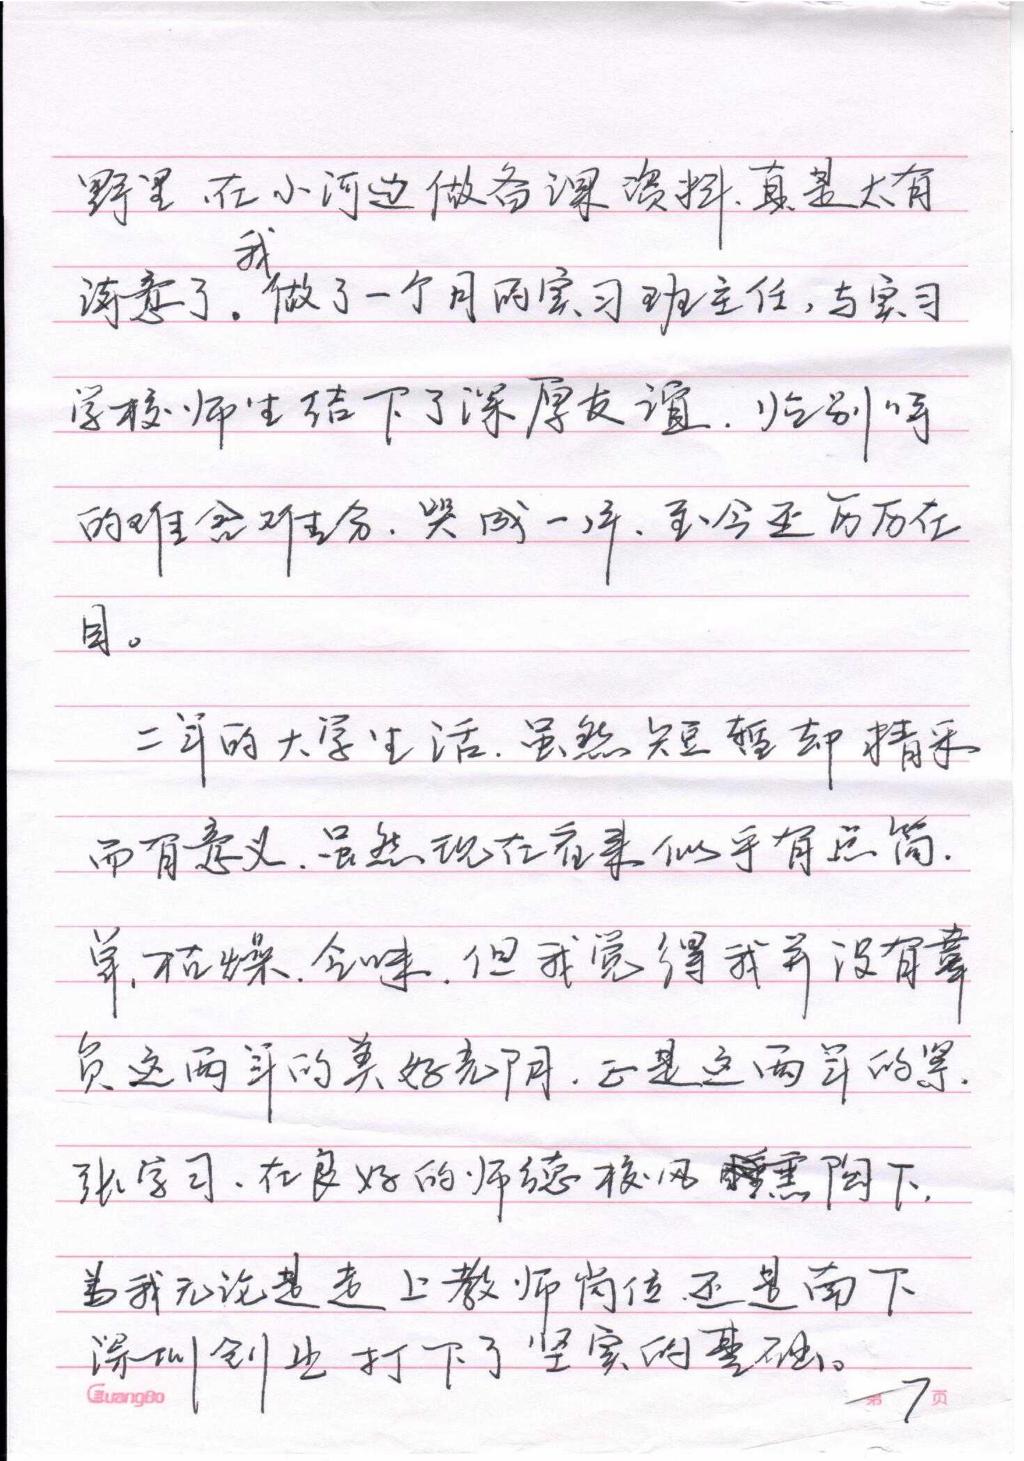 野里、在小河边做备课资料、真是太有
我
诗意了。做了一个月的实习班主任，与实习
学校师生结下了深厚友谊、临别时
的难舍难分、哭成一片、至今还历历在
目。
二年的大学生活、虽然短暂却精采
而有意义、虽然现在看来似乎有点简
单、枯燥、乏味、但我觉得我并没有辜
负这两年的美好光阴、正是这两年的紧
张学习、在良好的师德校风熏陶下、
为我无论是走上教师岗位还是南下
深圳创业打下了坚实的基础。
GuangBo
第7页